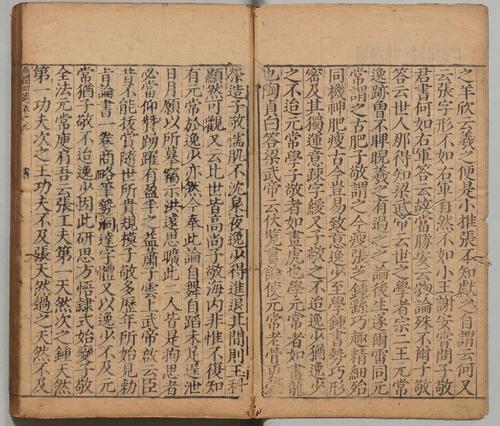 之羊欣云羲之便是小推張不知獻之自謂云何又
云張字形不如右軍自然不如小王謝安常問子敬
君書何如右軍答云故當勝安云物論殊不爾子敬
答云世人那得知梁武帝云世之學者宗二王元常
逸跡曾不睥睨羲之有過之之論後生遂爾雷同元
常謂之古肥子敬謂之今瘦張芝鍾繇巧趣精細殆
同機神肥瘦古今豈易致意逸少至學鍾書勢巧形
密及其獨運意疎字緩又子敬之不迨逸少猶逸少
之不迨元常學子敬者如畫虎也學元常者如畫龍
也陶貞白答梁武帝云伏覽書論使元常老骨更蒙
榮造子敬懦肌不沈泉夜逸少得進退其間則玉科
顯然可觀又云比世皆高尚子敬海内非惟不復知
有元常於逸少亦然今奉此論自舞自蹈未足逞泄
日月願以所摹獨示洪遠思曠此二人皆是狥思者
必當仰特踴躍有盈半之益蕭子雲上武帝啟云臣
昔不能拔賞隨世所貴規模子敬多歷年所始見勅
旨論書一卷商略筆勢洞達字體又以逸少不及元
常猶子敬不迨逸少因此研思方悟隸式始變子敬
全法元常庾有吾云張工夫第一天然次之鍾天然
第一功夫次之王功夫不及張天然過之天然不及